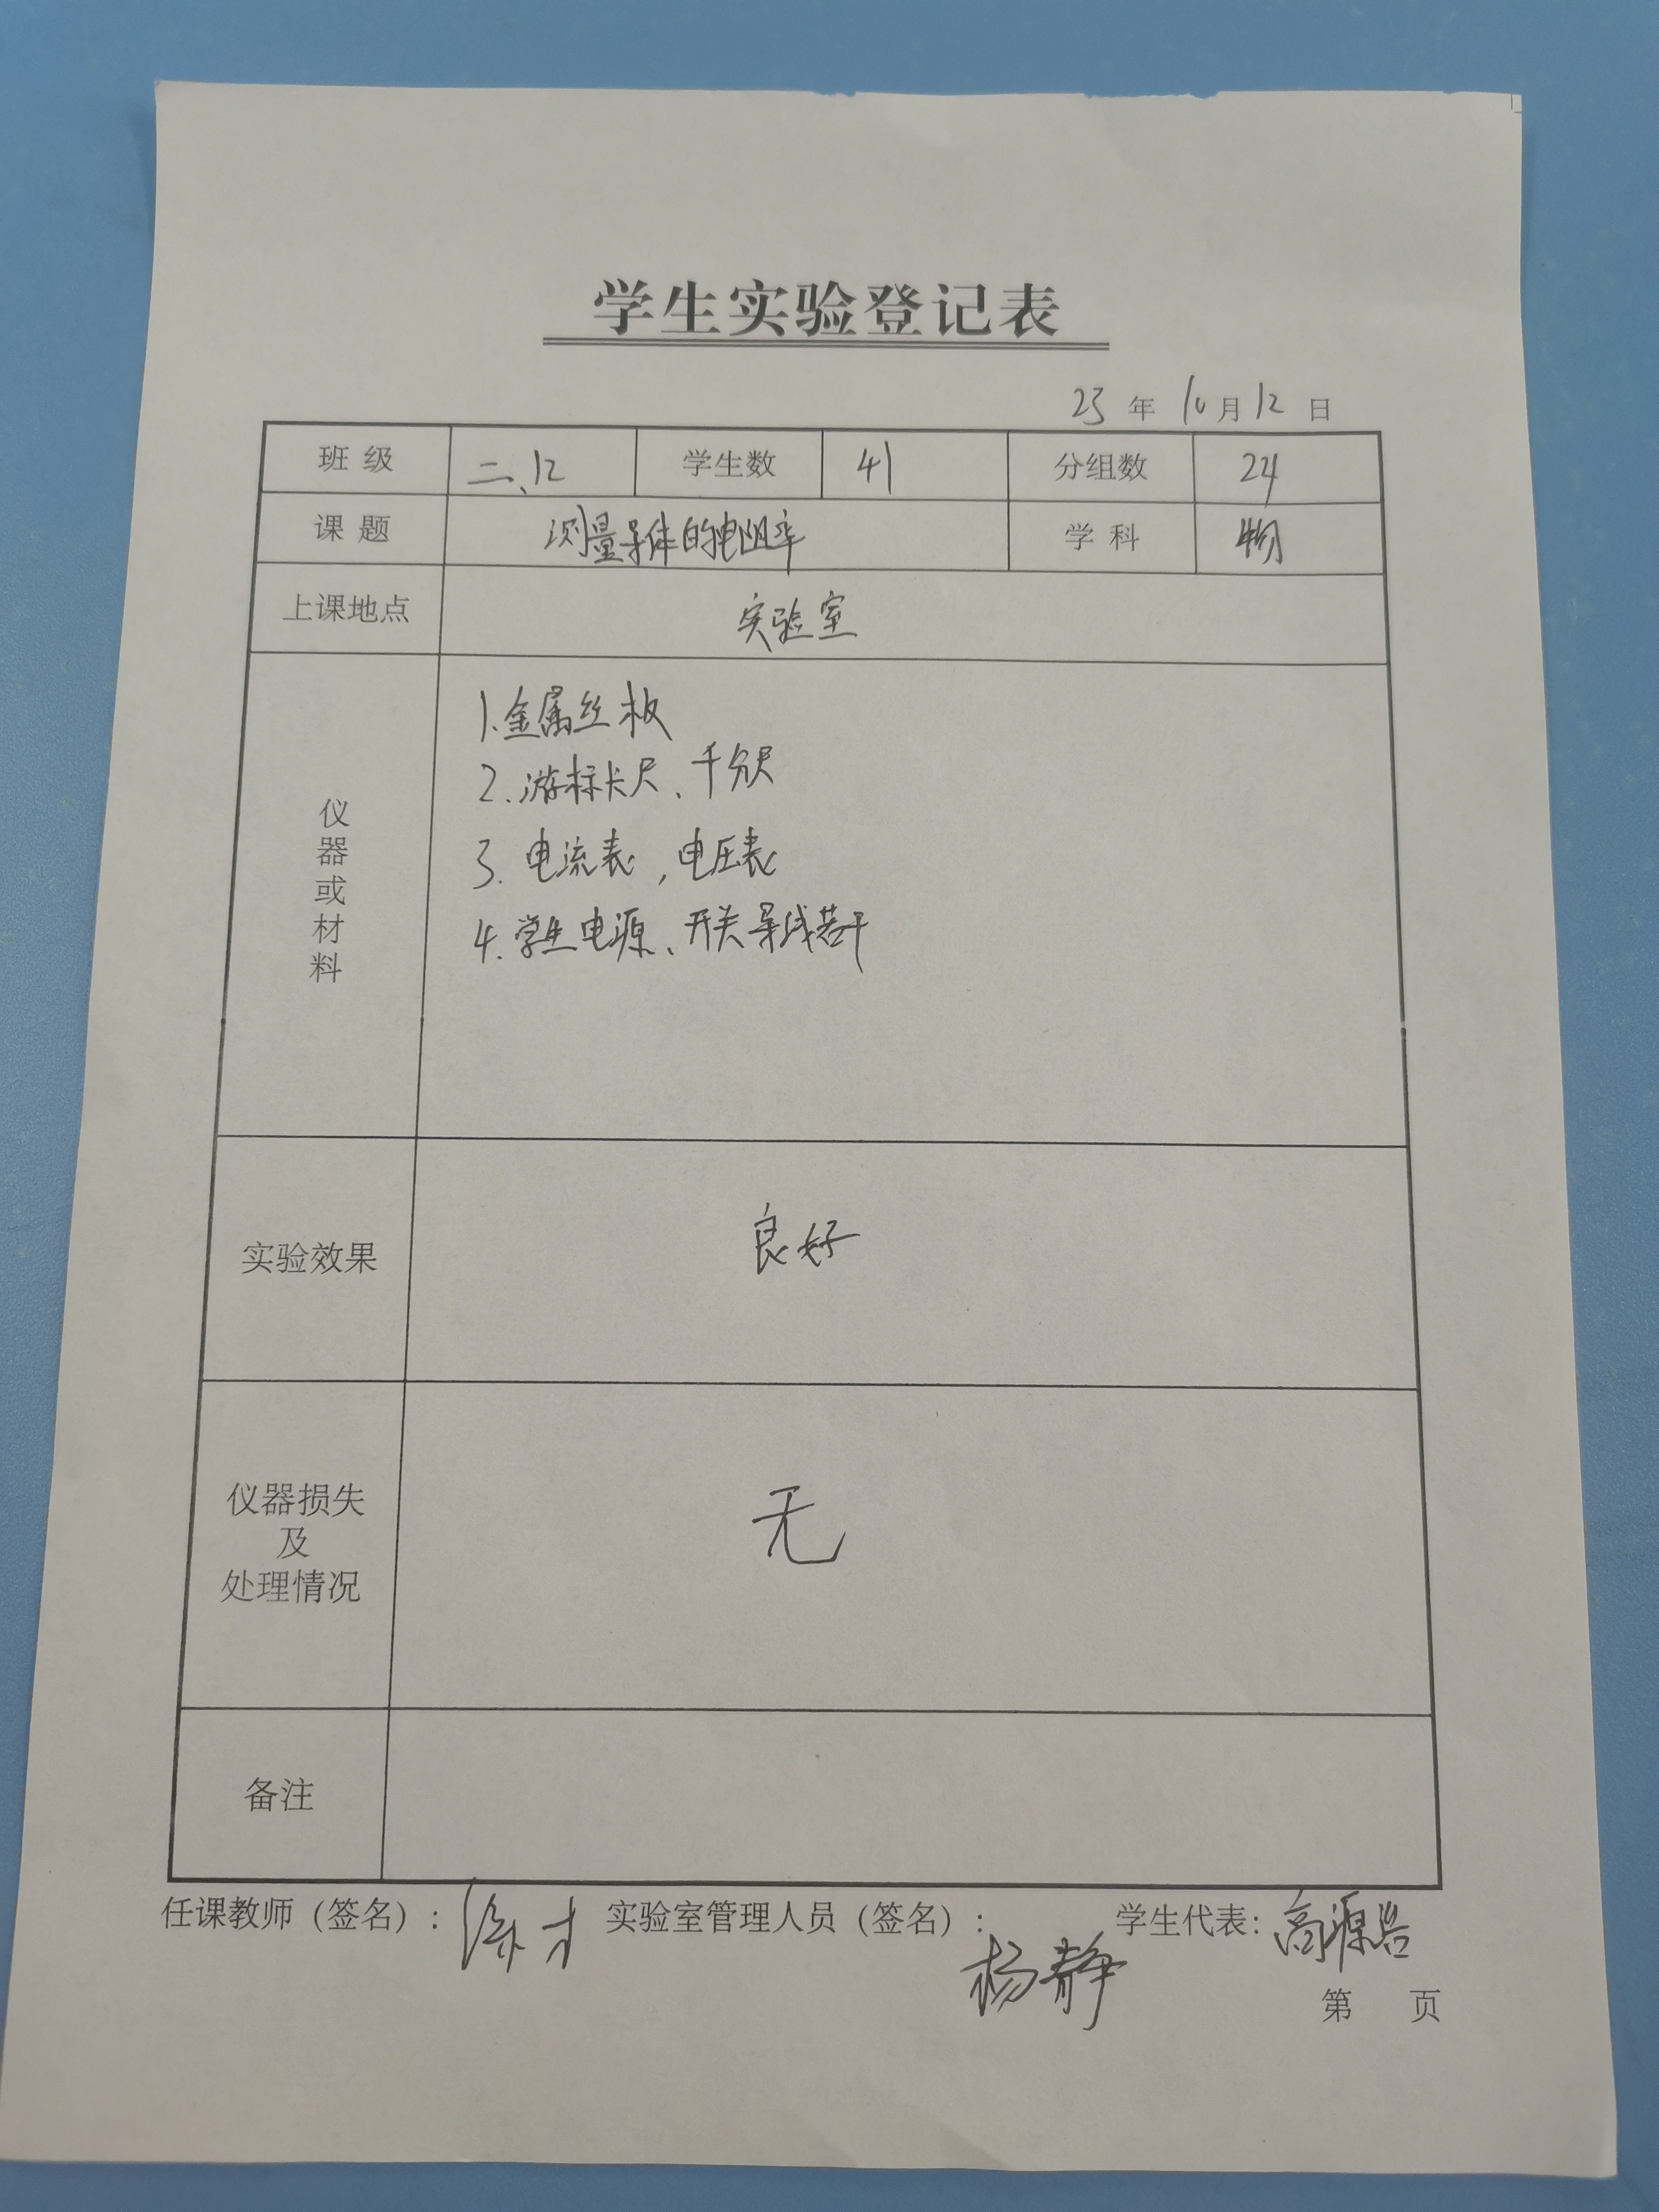 学生实验登记表
25 年 10 月 12 日
班级 二、12 学生数 41 分组数 24
课题 测量导体的电阻率 学科 物
上课地点 实验室
仪器或材料
1.金属丝板
2.游标卡尺、千分尺
3.电流表,电压表
4.学生电源、开关导线若干
实验效果 良好
仪器损失
及
处理情况
无
备注
任课教师（签名）: 实验室管理人员（签名）: 杨静 学生代表: 高源
第 页